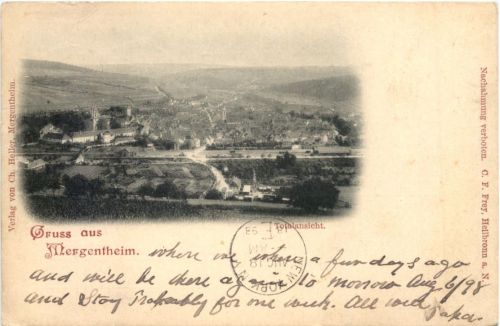 Verlag von Ch. Heller, Mergentheim.
Nachahmung verboten. C. F. Frey, Heilbronn a. N.
Totalansicht.
Gruss aus
Mergentheim.
where we where a few days ago
and will be there again to morrow Aug 6/98
and Stay Probably for one week. All well
Papa.
NEW YORK
AUG 19
AM
98